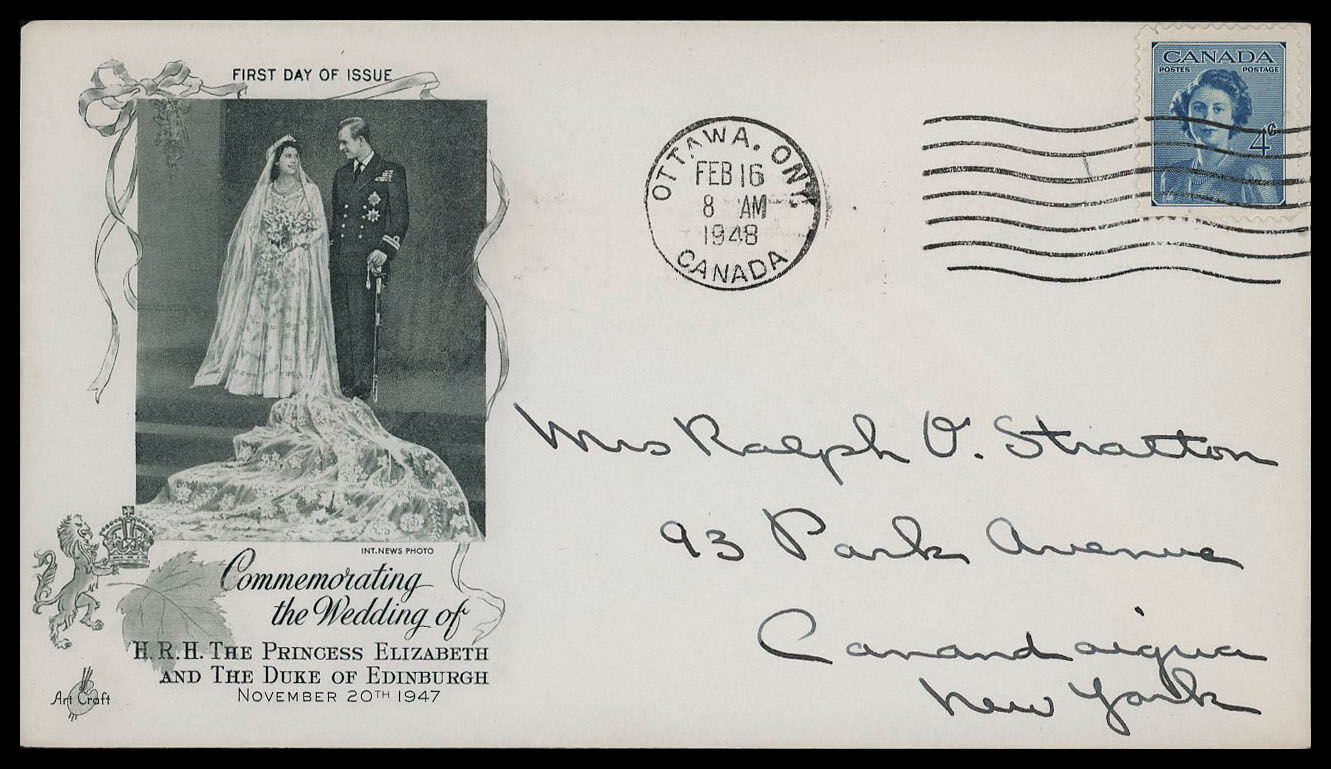 FIRST DAY OF ISSUE
CANADA
POSTES POSTAGE
4¢
OTTAWA, ONT.
FEB 16
8 AM
1948
CANADA
Mrs Ralph V. Stratton
93 Park Avenue
Canandaigua
New York
INT. NEWS PHOTO
Commemorating
the Wedding of
H.R.H. THE PRINCESS ELIZABETH
AND THE DUKE OF EDINBURGH
NOVEMBER 20TH 1947
Art Craft